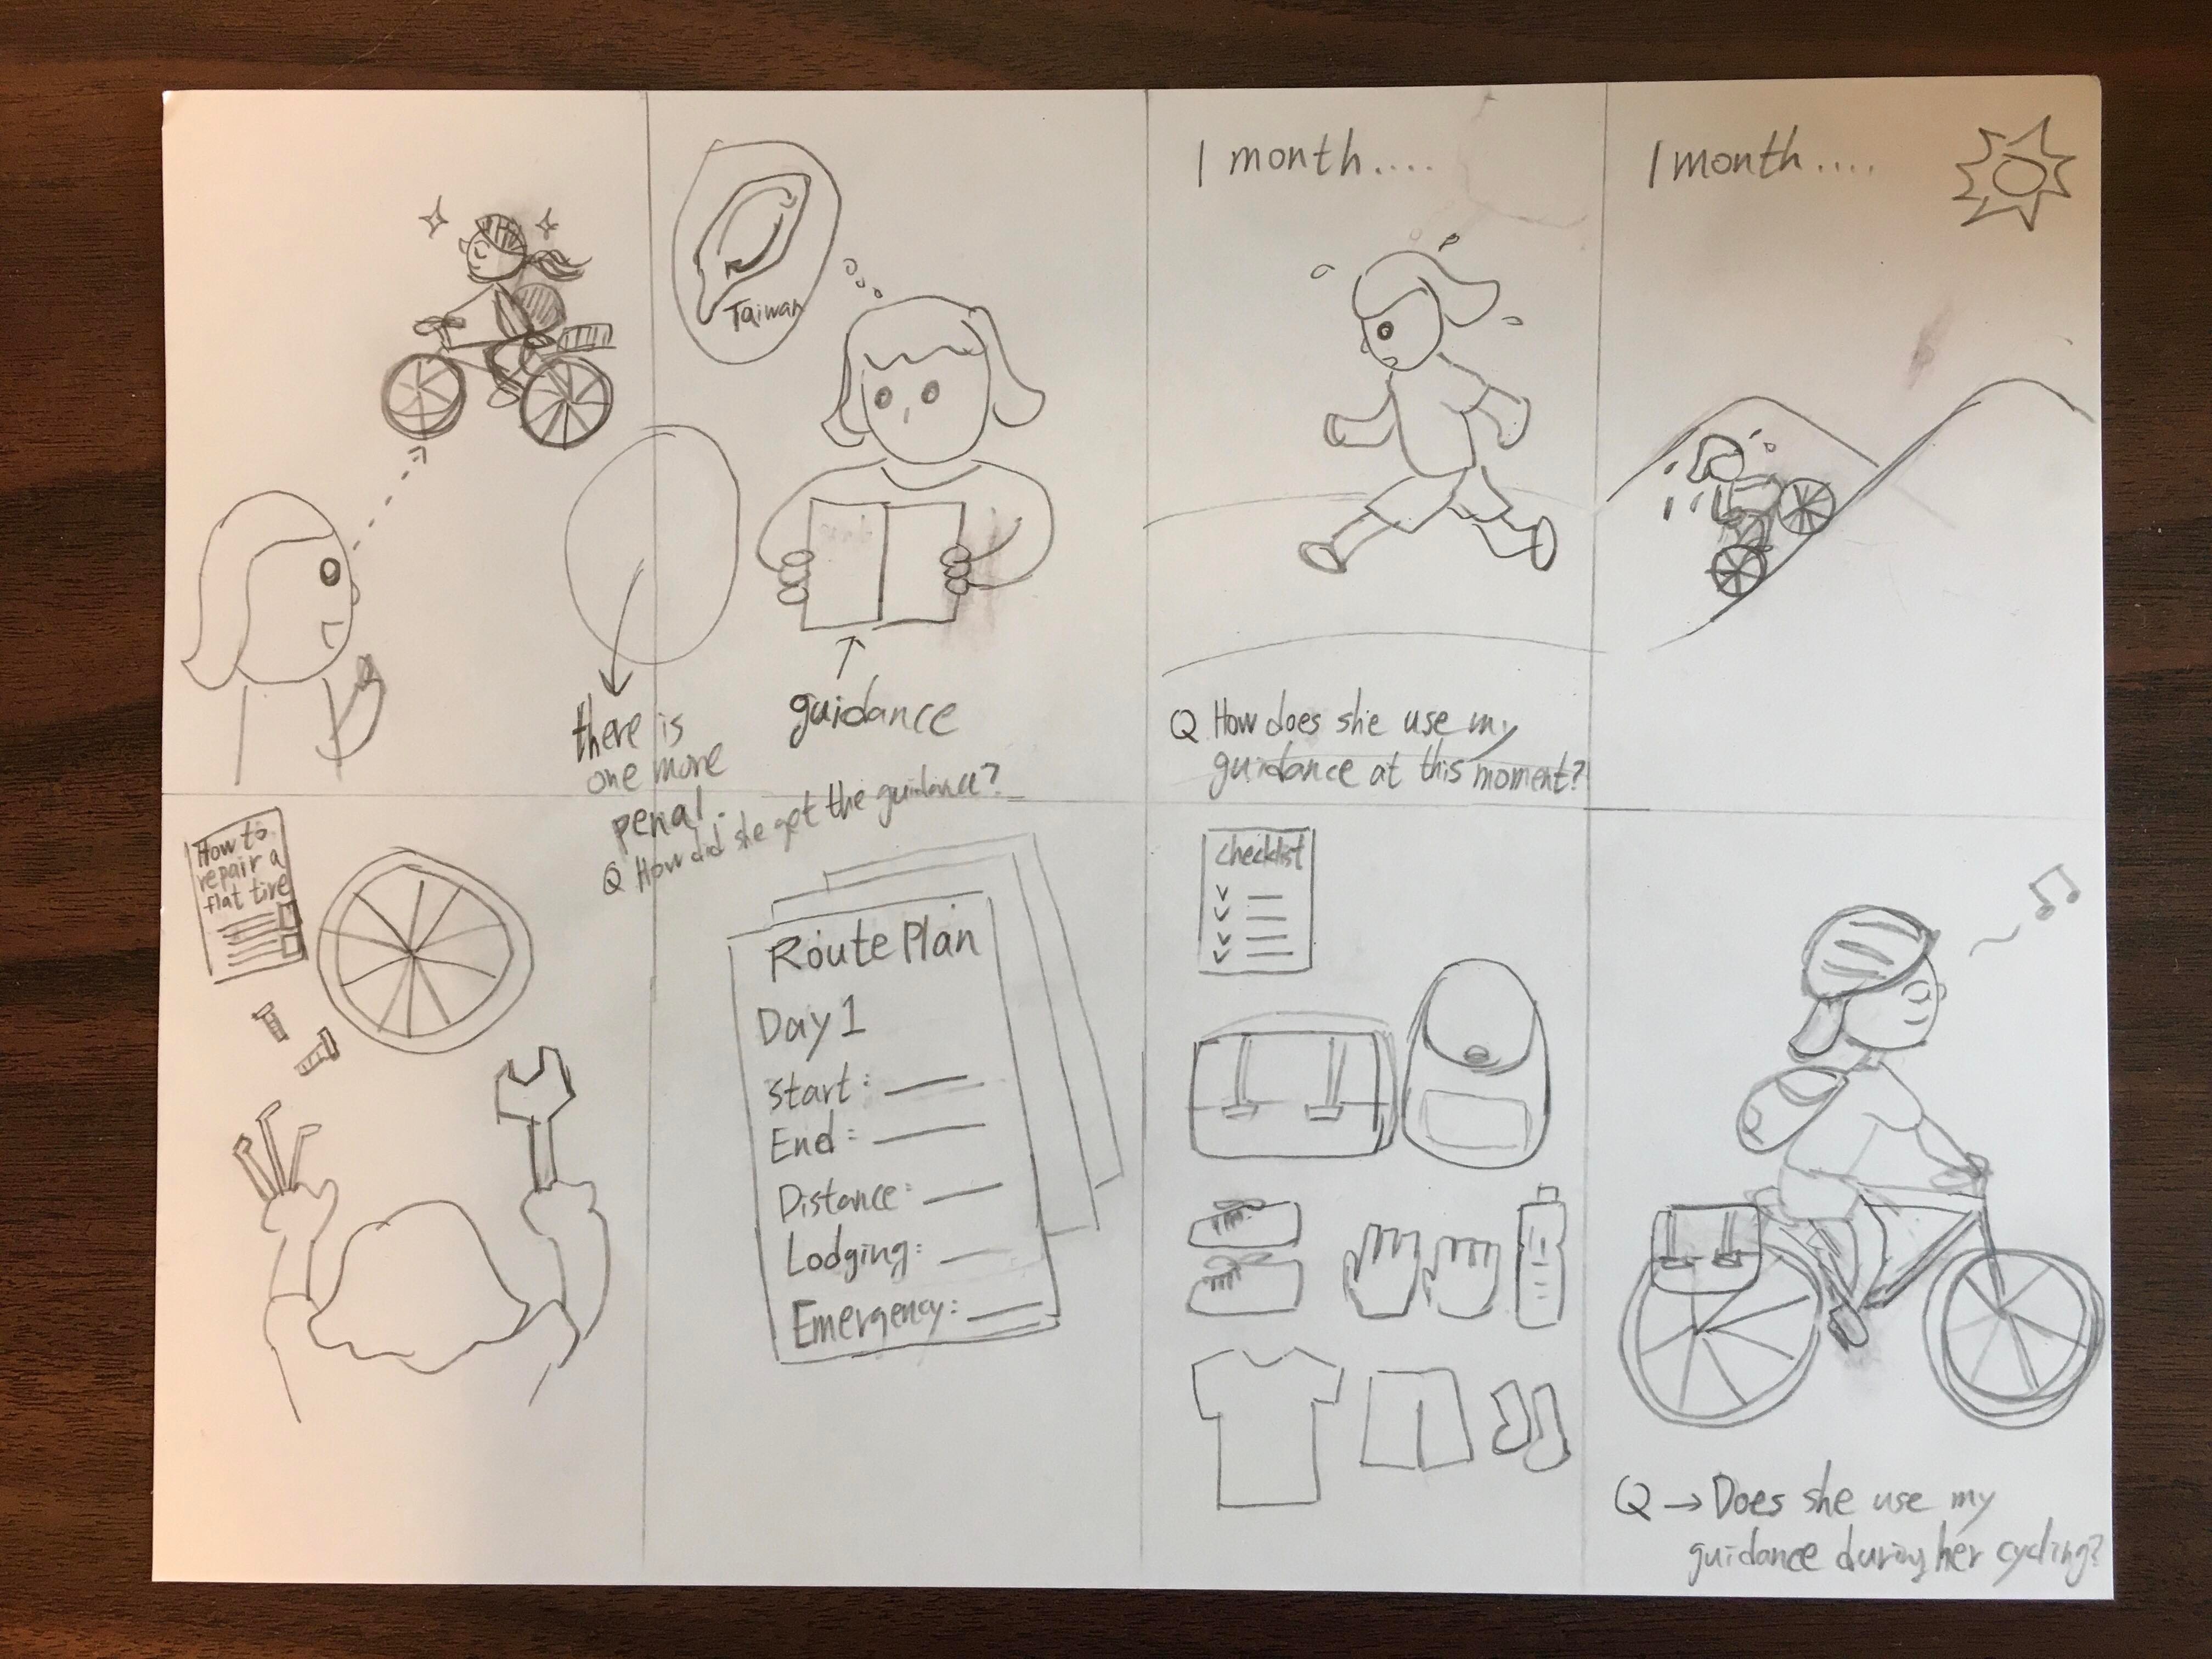 Taiwan
guidance
there is
one more
penal.
Q How did she get the guidance?
1 month....
Q How does she use my
guidance at this moment?
1 month....
How to
repair a
flat tire
Route Plan
Day 1
Start:
End:
Distance:
Lodging:
Emergency:
checklist
Q → Does she use my
guidance during her cycling?